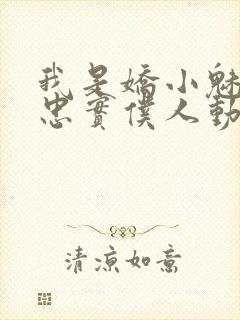 我是嬌小魅
忠實僕人動
清涼如意